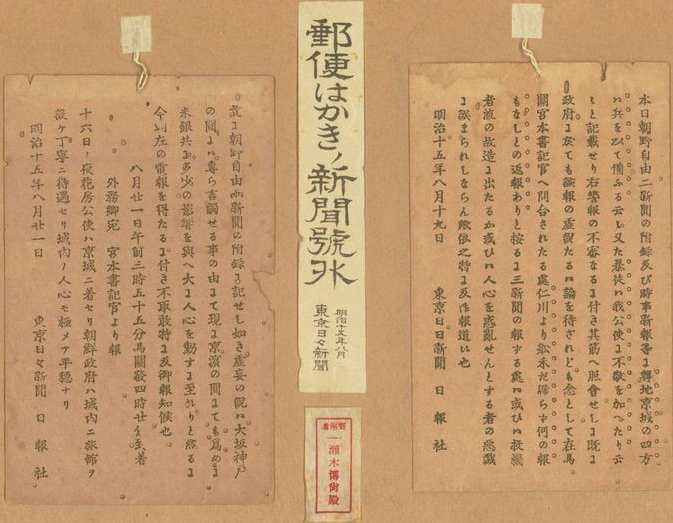 本日朝野自由二新聞の附録及び時事新報等に韓地京城の四方
に兵を以て備ふる云々又た暴徒は我公使に不敬を加へたり云
々と記載せり右警報の不審なるに付き其筋へ照會せしに既に
政府に於ても該報の虚説たるは論を待されども念として在馬
關宮本書記官へ問合されたる處仁川より船未だ歸らず何の報
もなしとの返報ありと按るに三新聞の報する處は或ひは投機
者流の故造に出たるか或ひは人心を惑亂せんとする者の
に誤まられしならん
明治十五年八月十九日 東京日日新聞 日報社
郵便はかきノ新聞號外
明治十五年八月
東京日々新聞
一瀬木博尚殿
前に朝野自由両新聞の附録に記せし如き虚妄の説は大坂神戸
の間には專ら言觸せる事の由にて現に京濱の間にても爲めに
米銀共に多少の影響を與へ大に人心を動すに至れりと然るに
今朝左の電報を得たるに付き不取敢御報知候也
八月廿一日午前二時五十五分馬關發四時廿分到著
外務卿宛 宮本書記官より報
十六日ノ夜花房公使ハ京城ニ着セリ朝鮮政府ハ城内ニ旅館ヲ
設ケ丁寧ニ待遇セリ城内ノ人心モ極メテ平穩ナリ
明治十五年八月廿一日 東京日々新聞 日報社